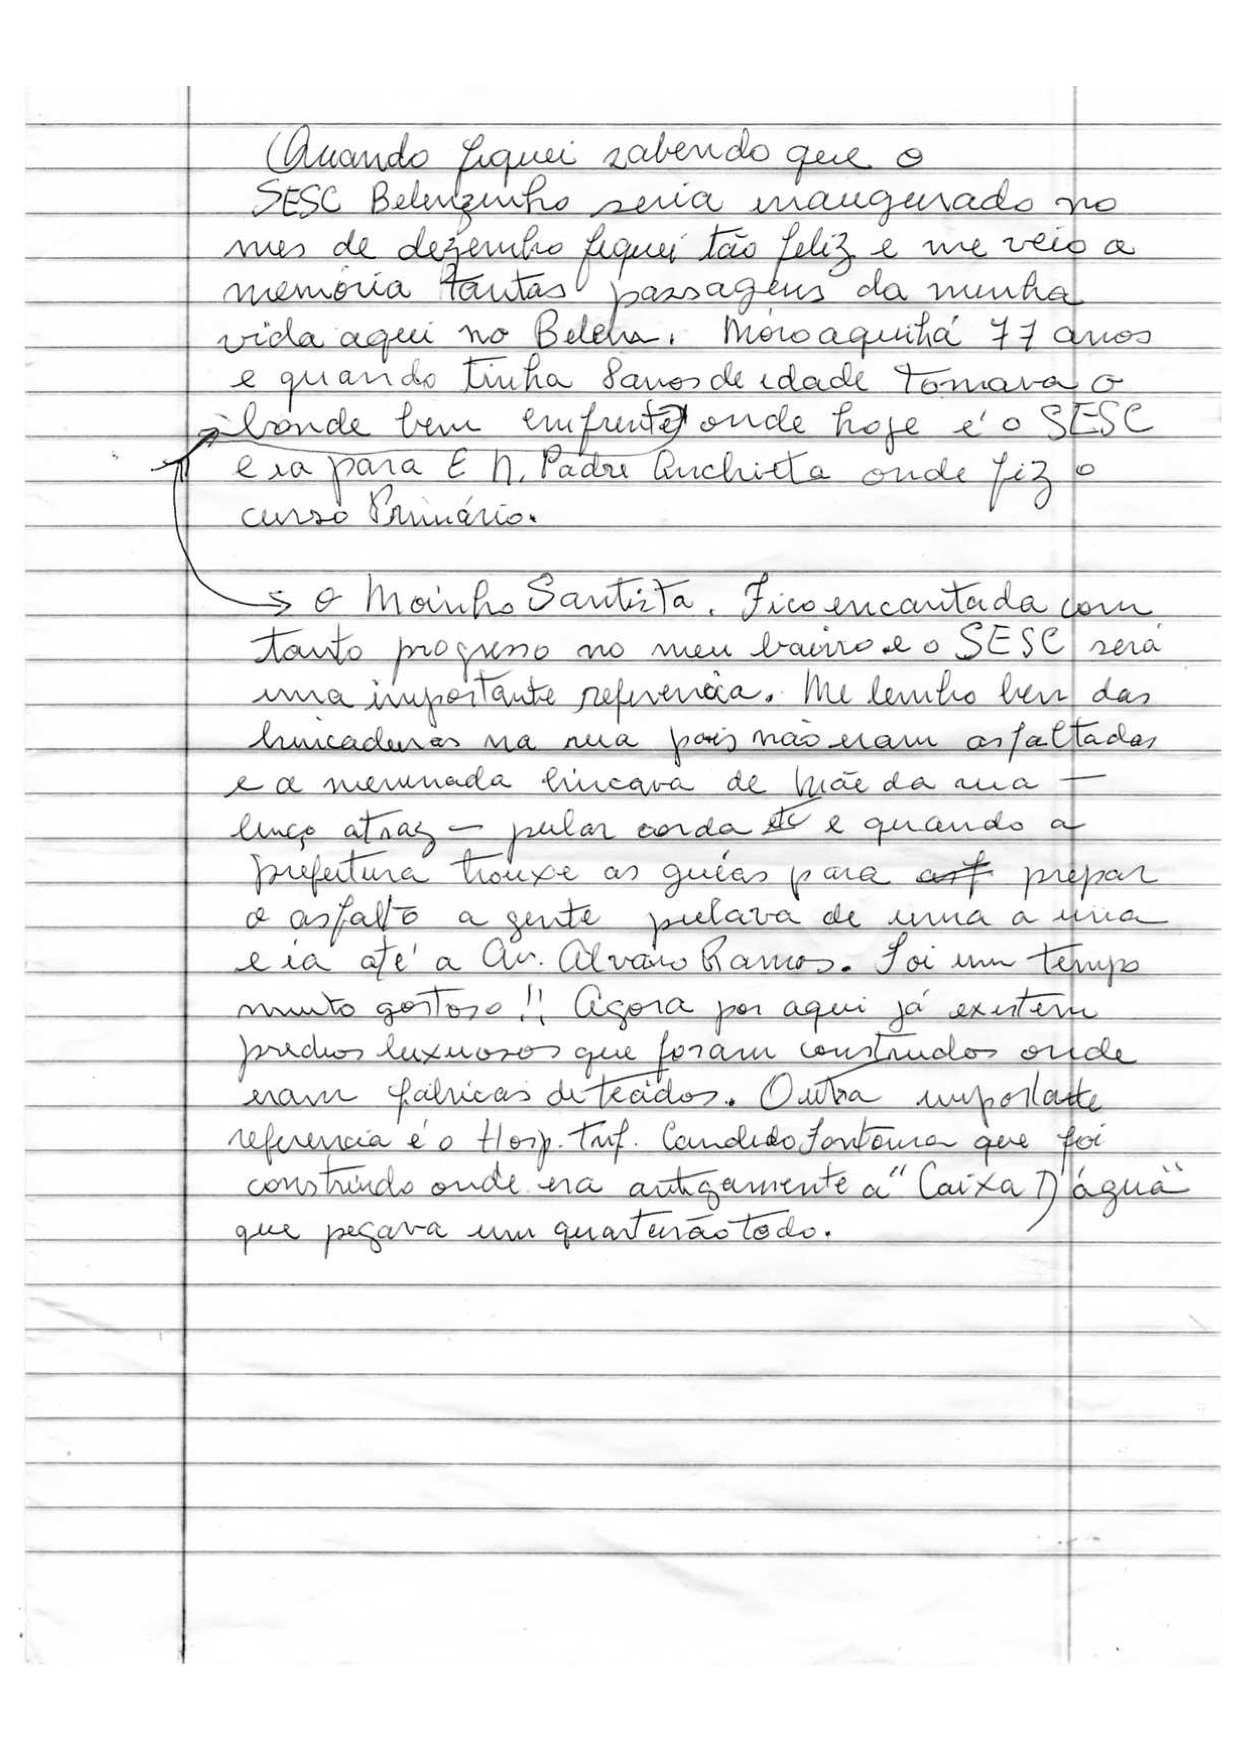 Quando fiquei sabendo que o
SESC Belenzinho seria inaugurado no
mes de dezembro fiquei tão feliz e me veio a
memória tantas passagens da minha
vida aqui no Belem. Moro aqui há 77 anos
e quando tinha 8 anos de idade tomava o
bonde bem em frente onde hoje é o SESC
e ia para E N. Padre Anchieta onde fiz o
curso Primário.
→ o Moinho Santista. Fico encantada com
tanto progresso no meu bairro e o SESC será
uma importante referencia. Me lembro bem das
brincadeiras na rua pois não eram asfaltadas
e a meninada brincava de Mãe da rua —
lenço atraz — pular corda etc e quando a
prefeitura trouxe as guias para asf prepar
o asfalto a gente pulava de uma a uma
e ia até a Av. Alvaro Ramos. Foi um tempo
muito gostoso!! Agora por aqui já existem
predios luxuosos que foram construidos onde
eram fábricas de tecidos. Outra importante
referencia é o Hosp. Inf. Candido Fontoura que foi
construido onde era antigamente a "Caixa D'água"
que pegava um quarteirão todo.